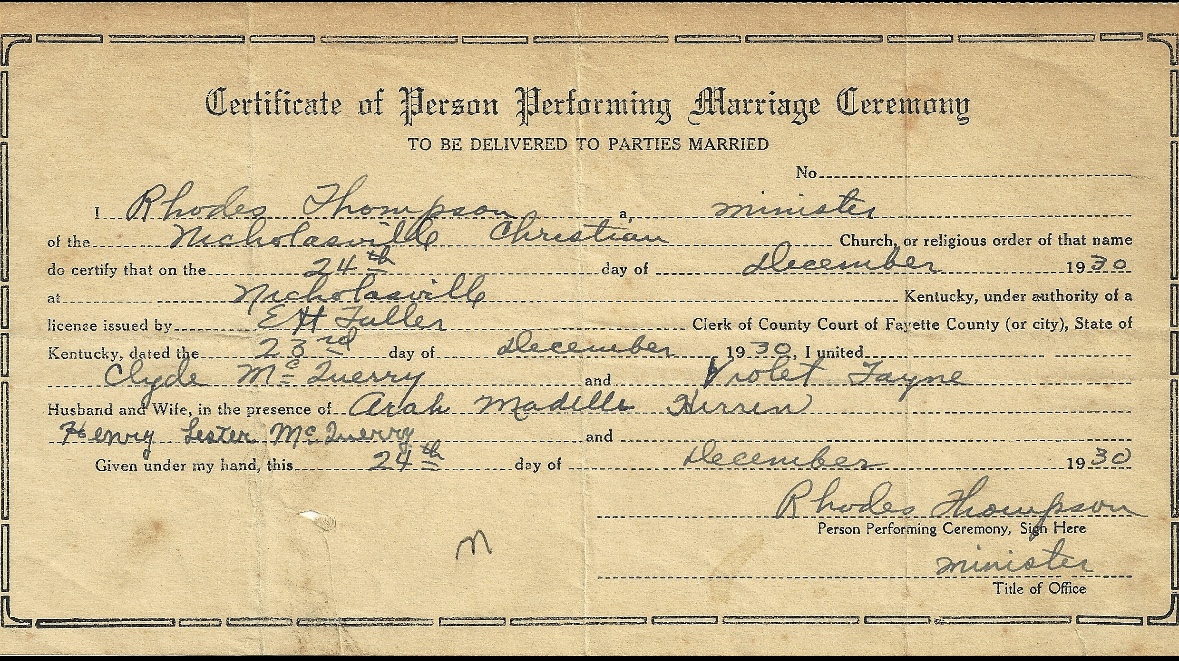 Certificate of Person Performing Marriage Ceremony
TO BE DELIVERED TO PARTIES MARRIED
No
I Rhodes Thompson a, minister
of the Nicholasville Christian Church, or religious order of that name
do certify that on the 24th day of December 1930
at Nicholasville Kentucky, under authority of a
license issued by E H Fuller Clerk of County Court of Fayette County (or city), State of
Kentucky, dated the 23rd day of December 1930, I united
Clyde McQuerry and Violet Jayne
Husband and Wife, in the presence of Arah Madille Herren
Henry Lester McQuerry and
Given under my hand, this 24th day of December 1930
Rhodes Thompson
Person Performing Ceremony, Sign Here
minister
Title of Office